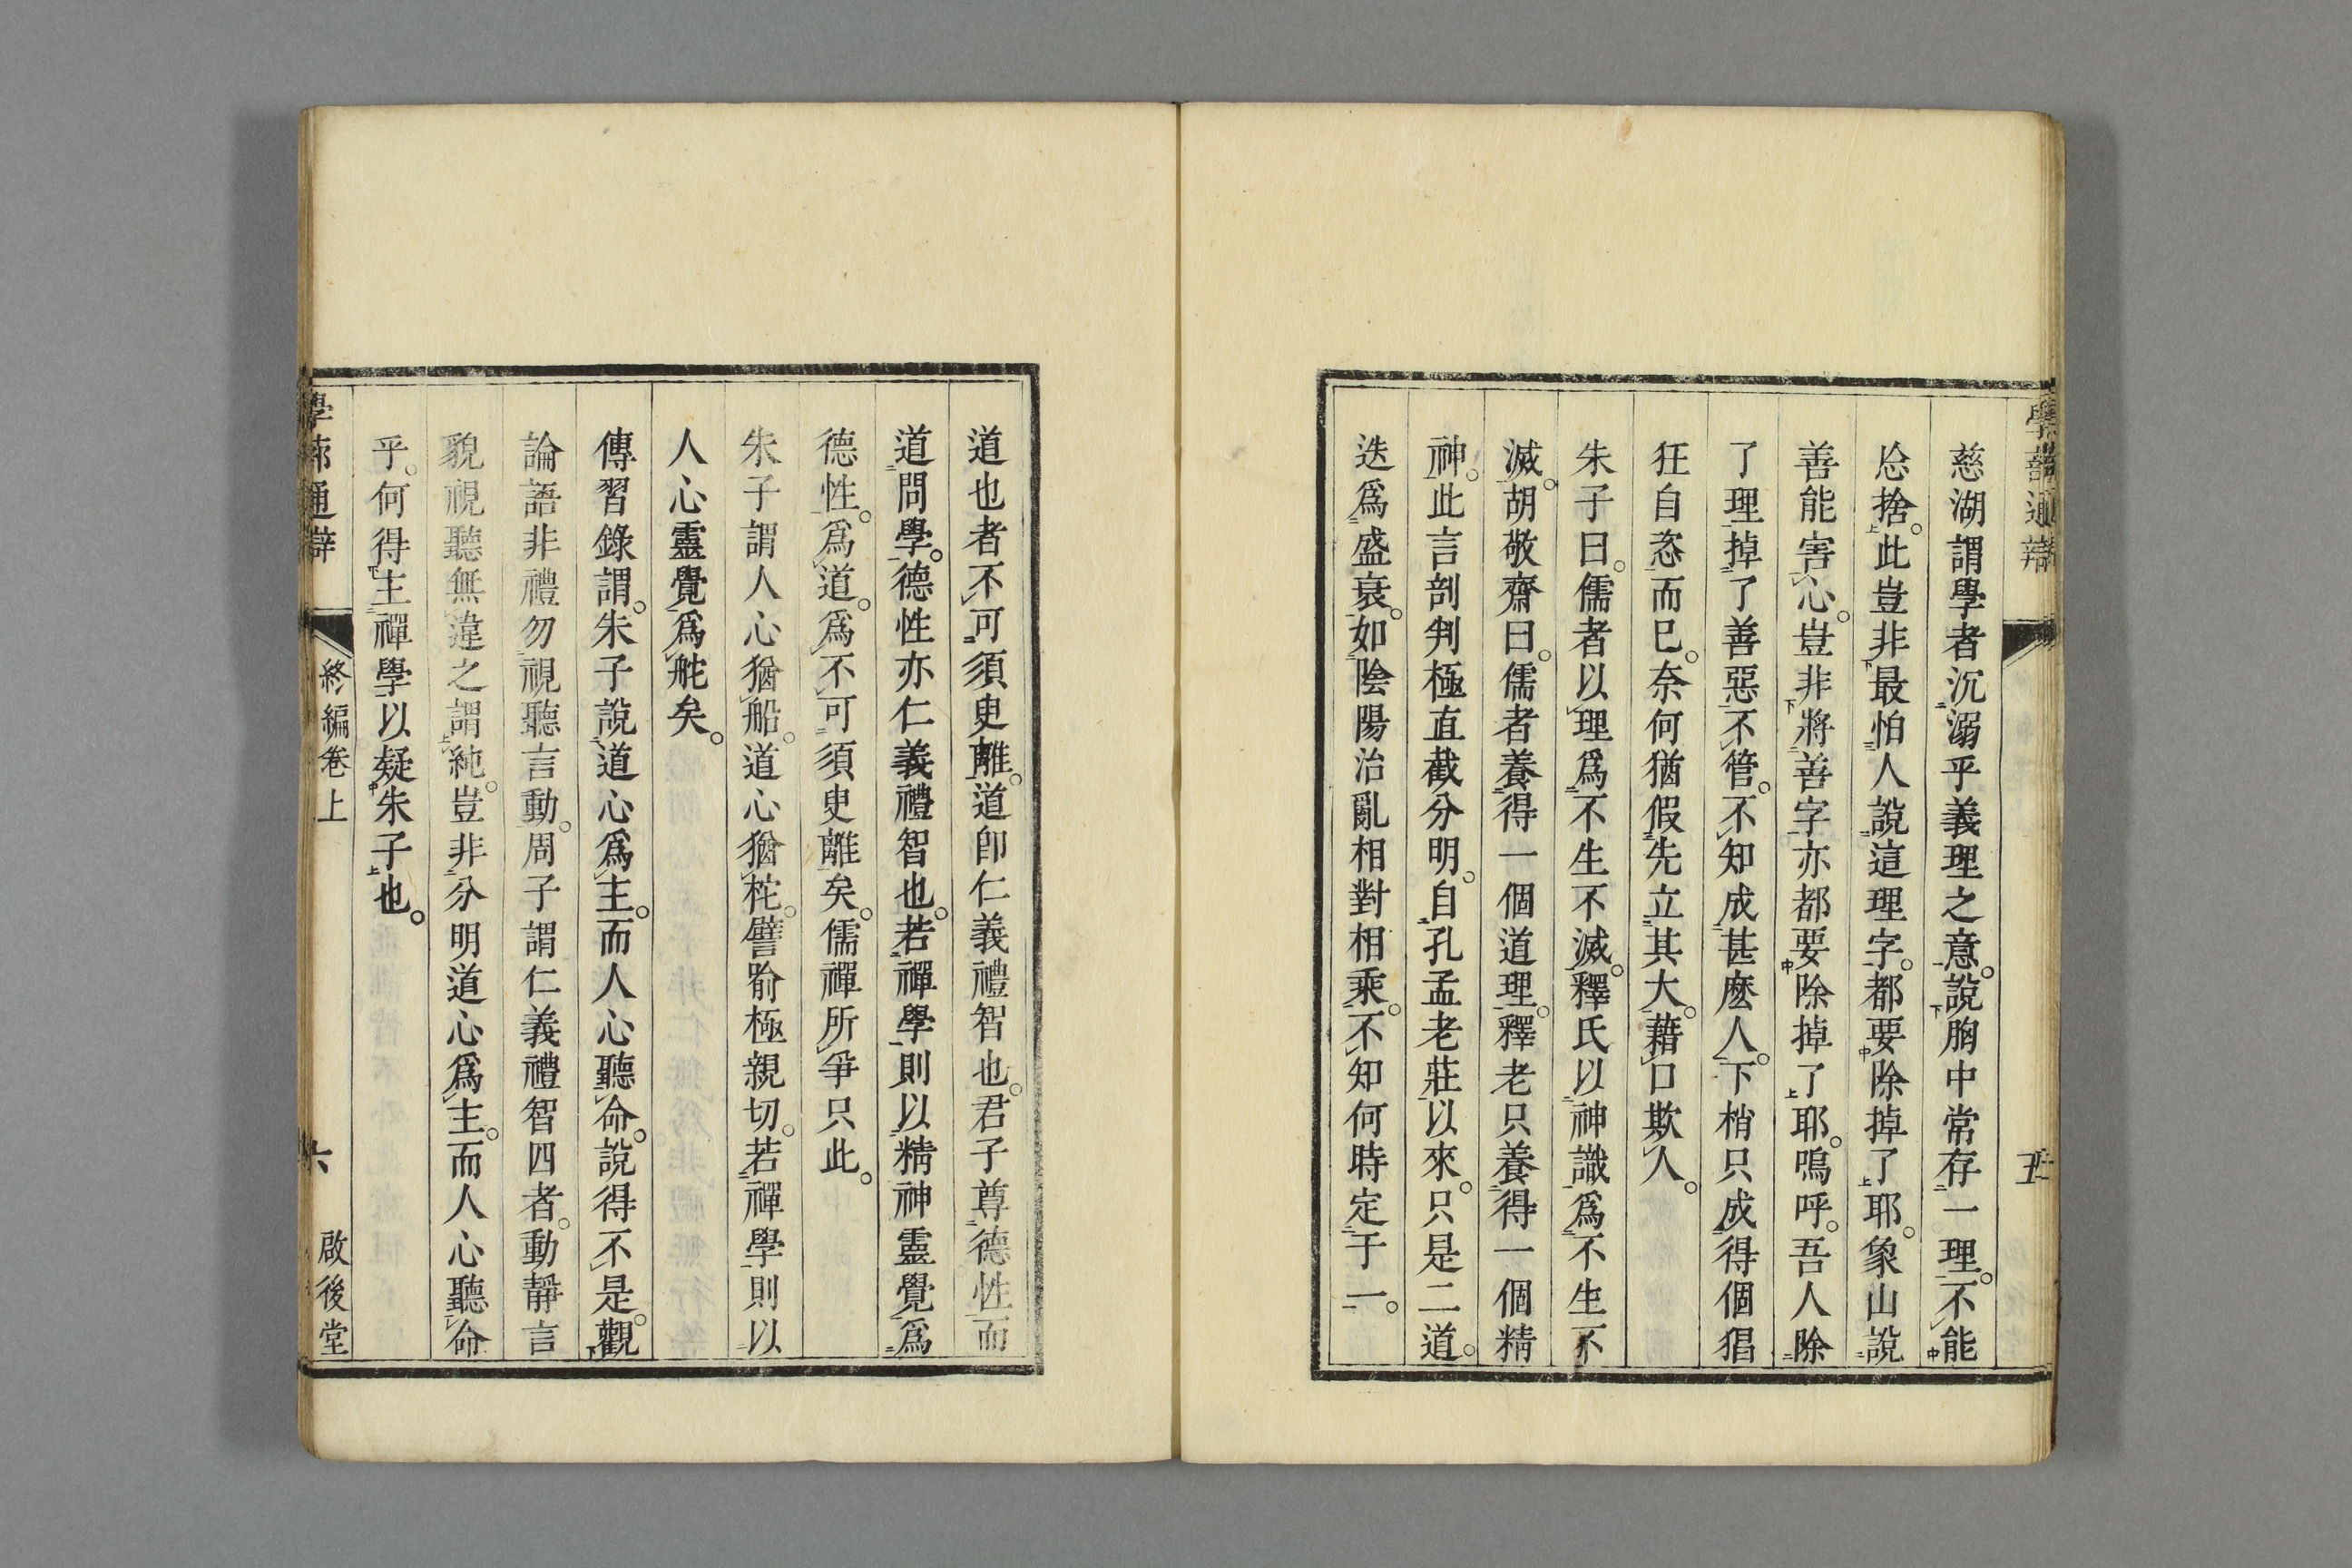 慈湖謂學者沉溺乎義理之意。說胸中常存一理。不能
忩捨。此豈非最怕人說這理字。都要除掉了耶。象山說
善能害心。豈非將善字亦都要除掉了耶。嗚呼。吾人除
了理掉了善惡不管。不知成甚麼人。下梢只成得個猖
狂自恣而已。奈何猶假先立其大。藉口欺人。
朱子曰。儒者以理爲不生不滅。釋氏以神識爲不生不
滅。胡敬齋曰。儒者養得一個道理。釋老只養得一個精
神。此言剖判極直截分明。自孔孟老莊以來。只是二道。
迭爲盛衰。如陰陽治亂相對相乘。不知何時定于一。
道也者不可須臾離。道卽仁義禮智也。君子尊德性而
道問學。德性亦仁義禮智也。若禪學則以精神靈覺爲
德性。爲道。爲不可須臾離矣。儒禪所爭只此。
朱子謂人心猶船。道心猶柁。譬喻極親切。若禪學則以
人心靈覺爲舵矣。
傳習錄謂。朱子說道心爲主。而人心聽命。說得不是。觀
論語非禮勿視聽言動。周子謂仁義禮智四者。動靜言
貌視聽無違之謂純。豈非分明道心爲主。而人心聽命
乎。何得主禪學以疑朱子也。
學蔀通辯 終編卷上 六 啟後堂